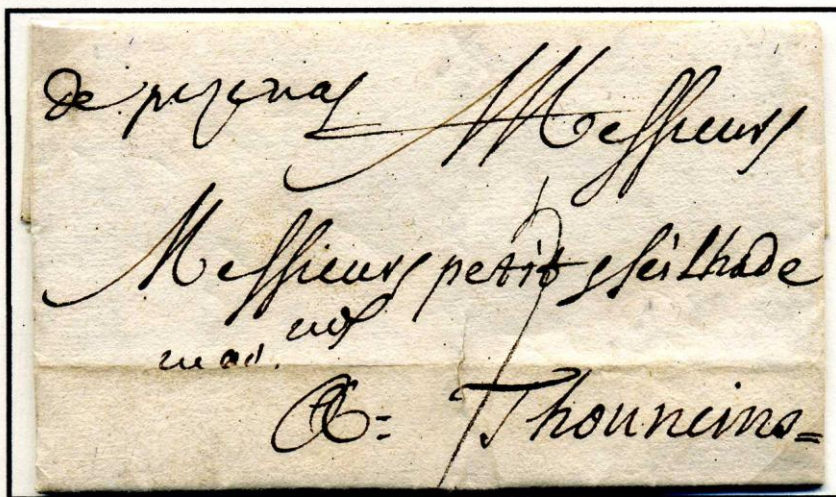 de pezenas Messieurs
Messieurs petit & feilhade
A Thonneins